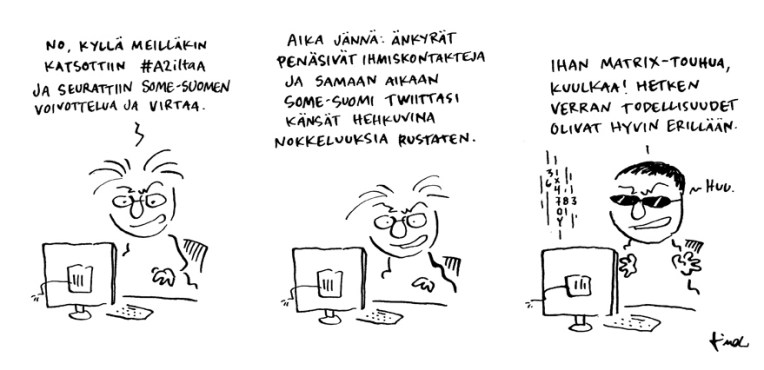 NO, KYLLÄ MEILLÄKIN
KATSOTTIIN #A2iltaa
JA SEURATTIIN SOME-SUOMEN
VOIVOTTELUA JA VIRTAA.
AIKA JÄNNÄ: ÄNKYRÄT
PENÄSIVÄT IHMISKONTAKTEJA
JA SAMAAN AIKAAN
SOME-SUOMI TWIITTASI
KÄNSÄT HEHKUVINA
NOKKELUUKSIA RUSTATEN.
IHAN MATRIX-TOUHUA,
KUULKAA! HETKEN
VERRAN TODELLISUUDET
OLIVAT HYVIN ERILLÄÄN.
HUU.